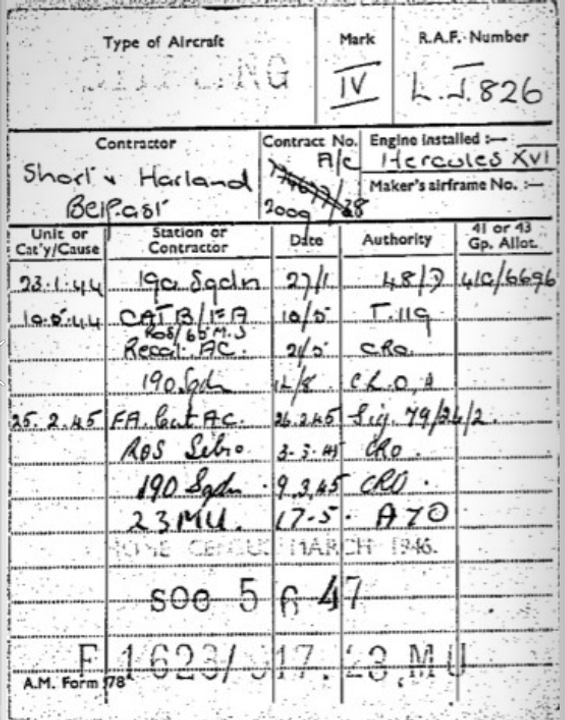 Type of Aircraft Mark R.A.F. Number
STIRLING IV L.J.826
Contractor Contract No. Engine installed :—
Short & Harland A/C Hercules XVI
Belfast 2009 Maker's airframe No. :—
Unit or Cat'y/Cause Station or Contractor Date Authority 41 or 43 Gp. Allot.
23.1.44 190 Sqdn 27/1 48/7 41C/6696
10.5.44 CAT B/FA 10/5 T.119
ROS/65 M.S
Recat. AC. 2/5 CRO.
190 Sqdn
25.2.45 FA. Cat AC. 26.2.45 Sig. 79/26/2.
ROS Sebro. 3-3-45 CRO.
190 Sqdn. 9.3.45 CRO.
23 MU. 17-5. A70
HOME CENSUS MARCH 1946.
SOC 5 6 47
F 1623/ 517. 23 MU
A.M. Form 78